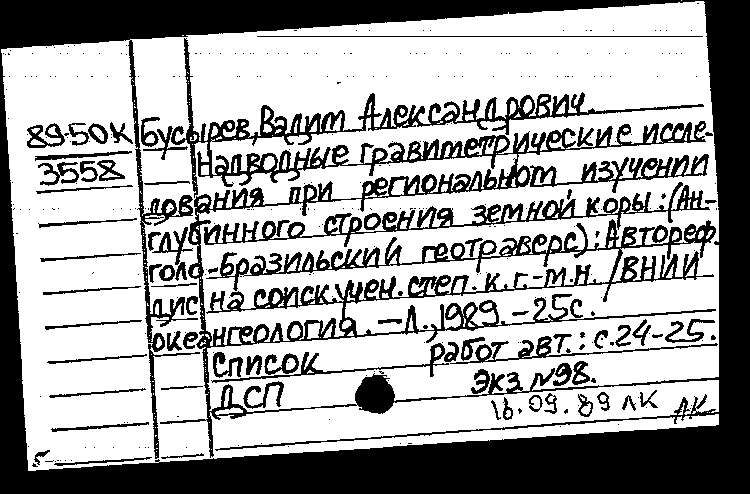 89-50К Бусырев, Вадим Александрович.
3558 Надводные гравиметрические иссле-
дования при региональном изучении
глубинного строения земной коры: (Ан-
голо-Бразильский геотраверс): Автореф.
дис на соиск. учен. степ. к. г.-м. н. /ВНИИ
океангеология. — Л., 1989. - 25 с.
Список работ авт.: с. 24-25.
ДСП Экз. №98.
18.09.89 ЛК ЛК